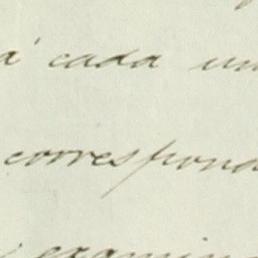 á cada un
correspond
examin